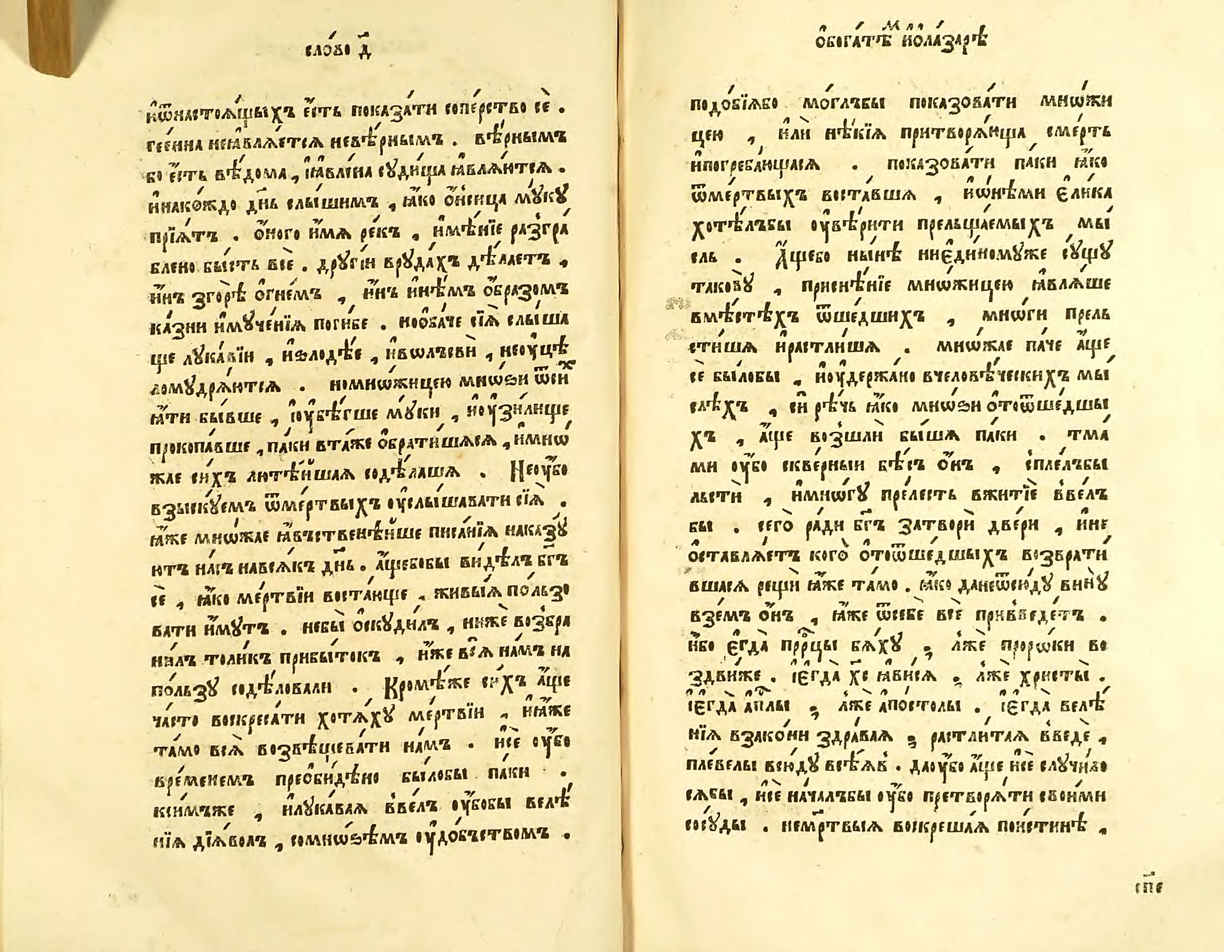 сло́во д҃
и҆ѿнастоѧ́щыхъ є҆́сть показа́ти сопе́рство сѐ .
гее́нна неꙗ҆влѧ́етсѧ невѣ́рнымъ . вѣ́рнымъ
бо є҆́сть вѣ́дома , ꙗ҆влена судища ꙗ҆влѧ́ютсѧ .
и҆накождо дн҃ь слы́шимъ , ꙗ҆́ко о҆́нсица мꙋ́кꙋ
прїѧ́тъ . о҆́ного и҆́мѧ ре́къ , и҆мѣ́нїе разгра́
блено бы́сть всѐ . дрꙋгі́й врꙋда́хъ дѣ́лаетъ ,
и҆́нъ згорѣ̀ о҆гне́мъ , и҆́нъ и҆нѣ́мъ о҆́бразомъ
ка́зни и҆мꙋче́нїѧ поги́бе . нооба́че сїѧ̑ слы́ша
ще лꙋка́вїи , и҆ѕлодѣ́е , и҆вѡлъсви́ , неоуцѣ
ломꙋ́дрѧютсѧ . номнѡжи́цею мнѡѕи ѿси́х
ꙗ҆́ти бы́вше , и҆оубѣ́гше мꙋ́ки , и҆оузи́лище
прокопа́вше , па́ки вта́ѧже ѡ҆брати́шасѧ , и҆мнѡ́
жае си́хъ лютѣ́йшаѧ содѣ́лашѧ . Неоу҆́бо
взы́скꙋемъ ѿме́ртвыхъ оу҆слы́шавати сїѧ̑ .
ꙗ҆́же мнѡ́жае ꙗ҆́вственнѣйше писа́нїѧ нака́зꙋ
итъ на́съ навсѧ́къ дн҃ь . а҆́щебобы ви́дѣлъ бг҃ъ
сѐ , ꙗ҆́ко ме́ртвїи воста́юще , живы́ѧ по́льзо
вати и҆́мꙋтъ . небы̀ о҆скꙋди́лъ , ниже возбра
ни́лъ толи́къ прибы́токъ , и҆́же всѧ̑ на́мъ на
по́льзꙋ содѣ́ловали . Кромѣ́же си́хъ а҆́ще
ча́сто воскреса́ти хотѧ́хꙋ ме́ртвїи , и҆ꙗ҆́же
та́мо всѧ̑ возвѣща́вати на́мъ . и҆сѐ оу҆́бо
вре́менемъ преоби́дѣно бы́лобы па́ки .
ксимъже , и҆лꙋка́ваѧ ввѐлъ оу҆́бобы велѣ́
нїѧ дїѧ́волъ , сомно́ѕѣмъ оу҆до́бъствомъ .
ѡ҆бога́тѣ и҆ѡла́зарѣ
подо́бїѧбо мо́глъбы показова́ти мнѡжи
цею , и҆лѝ нѣ́кїѧ притворѧ́юща сме́рть
и҆погреба́ющаѧсѧ . показова́ти па́ки ꙗ҆́ко
ѿме́ртвыхъ воста́вшѧ , и҆ѡ҆нѣ́ми є҆ли́ка
хотѣ́лъбы оу҆вѣ́рити прельща́емыхъ мы́
сль . А҆́щебо ны́нѣ ниеди́номꙋже сꙋ́щꙋ
тако́вꙋ , присне́нїе мнѡжи́цею ꙗ҆влѧ́ше
вмѣ́стѣхъ ѿше́дшихъ , мнѡ́ги прель
сти́шѧ и҆растли́шѧ . мнѡ́жае па́че а҆́ще
сѐ бы́лобы , и҆оудержа́но вчеловѣ́ческихъ мы́
слѣхъ , си рѣ́чь ꙗ҆́ко мнѡ́ѕи отѿше́дшы
хъ , а҆́ще возшлѝ бы́шѧ па́ки . тма́
ми оу҆́бо скве́рныи бѣ́съ о҆́нъ , сплѐлъбы
льсти̑ , и҆мно́гꙋ пре́лесть вжитїѐ ввѐлъ
бы . сего̀ ра́ди бг҃ъ затворѝ две́ри , и҆не
ѡ҆ставлѧ́етъ кого̀ отѿше́дшыхъ возврати́
вшасѧ рещѝ ꙗ҆́же та́мо . ꙗ҆́ко данеѿсю́дꙋ винꙋ̀
взе́мъ о҆́нъ , ꙗ҆́же ѿсебѐ всѐ приввѐдетъ .
и҆́бо є҆гда̀ прⷪ҇рцы бѧ́хꙋ , лже проро́ки во
здви́же . и҆є҆гда̀ хс҃ ꙗ҆ви́сѧ , лже христы̀ .
и҆є҆гда̀ а҆пⷭ҇лы , лже а҆постолы . и҆є҆гда̀ велѣ́
нїѧ взако́ни здра́ваѧ , растли́таѧ введѐ ,
пле́велы всю́дꙋ всѣ́ѧв . даоу҆́бо а҆́ще и҆сѐ слꙋчи́ло
сѧбы , и҆сѐ нача́лъбы оу҆́бо претворѧ́ти свои́ми
сосꙋ́ды . неме́ртвыѧ воскреша́ѧ пои́стинѣ ,
сп҃е